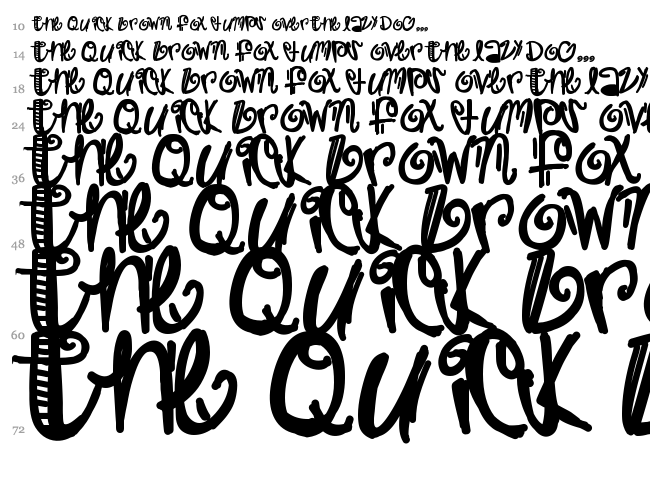 10 the Quick brown fox jumps over the lazy Dog...
14 the Quick brown fox jumps over the lazy Dog...
18 the Quick brown fox jumps over the lazy
24 the Quick brown fox jumps ove
36 the Quick brown fox
48 the Quick brown
60 the Quick br
72 the Quick b